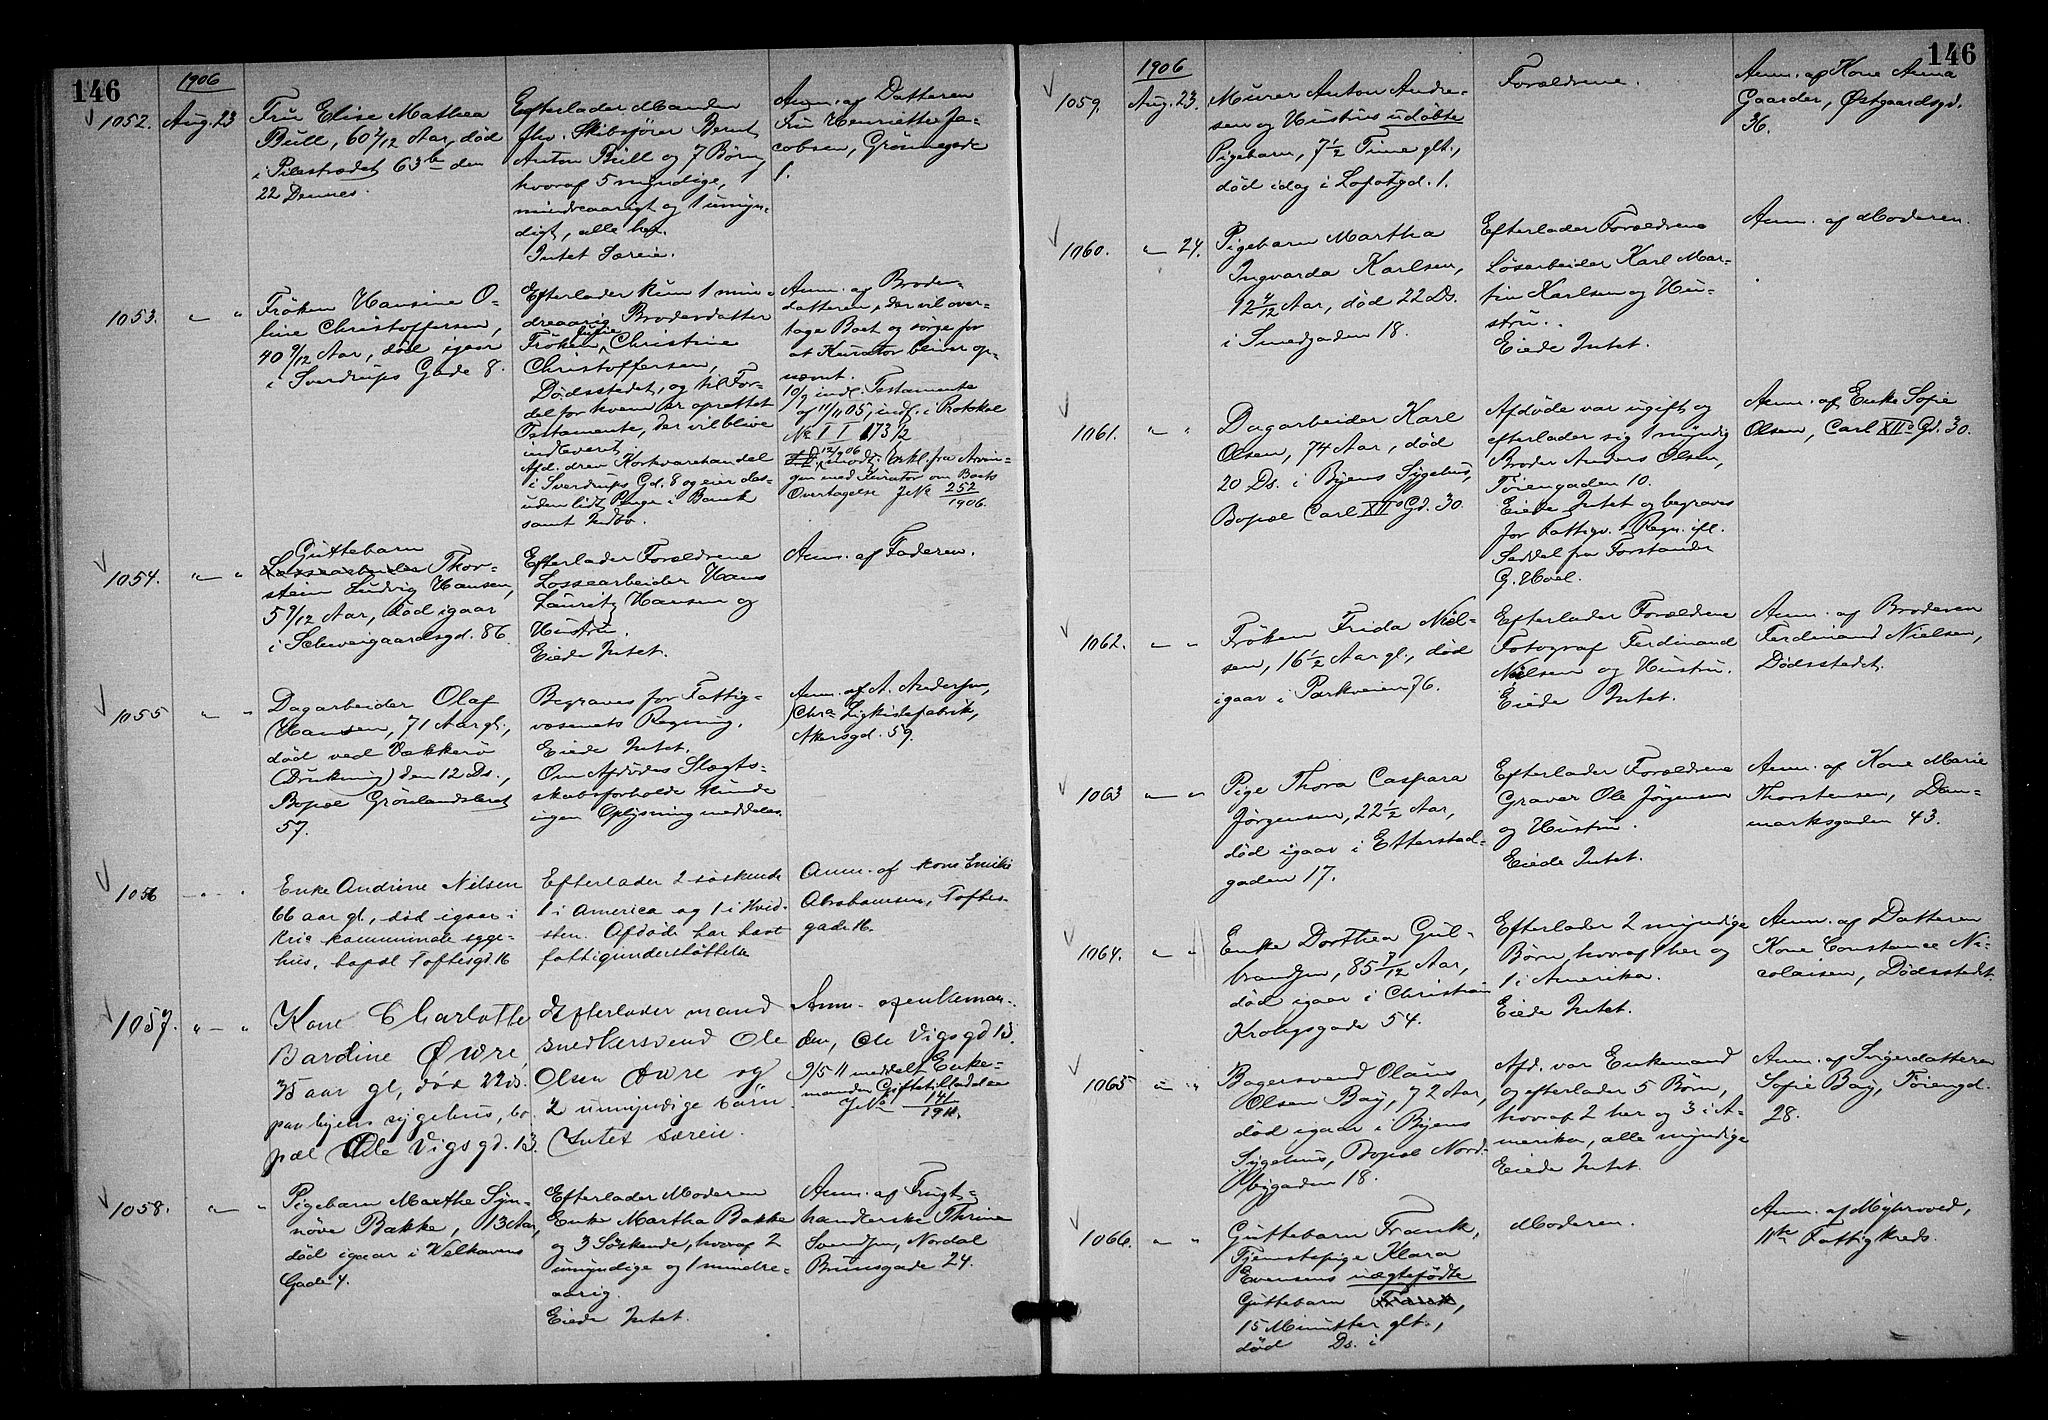 146
1906
1052.
Aug. 23
Fru Elise Mathea
Bull, 60 2/12 Aar, død
i Pilestrædet 63b den
22 Dennes.
Efterlader Manden
fhv. Skibsfører Bernt
Anton Bull og 7 Børn,
hvoraf 5 myndige, 1
mindreaarigt og 1 umyn-
digt, alle her.
Intet Særeie.
Anm. af Datteren
Fru Henriette Ja-
cobsen, Grønnegade
1.
1053.
" — "
Frøken Hansine O-
line Christoffersen,
40 9/12 Aar, død igaar
i Sverdrups Gade 8.
Efterlader kun 1 min-
dreaarig Broderdatter
Frøken Julie Christine
Christoffersen,
Dødsstedet, og til For-
del for hvem er oprettet
Testamente, der vil blive
indleveret.
Afd. drev Kortvarehandel
i Sverdrups Gd. 8 og eier des-
uden lidt Penge i Bank
samt Indbo.
Anm. af Broder-
datteren, der vil over-
tage Boet og sørge for
at Kurator bliver op-
nævnt.
10/9 indl. Testamente
af 11/11 05, indf. i Protokol
No II 173/2
12/9 06 modt. Erkl. fra Arvin-
gen med Kurator om Boets
Overtagelse JNo 252/1906.
1054.
" — "
Guttebarn
Lossearbeider Thor-
stein Ludvig Hansen,
5 9/12 Aar, død igaar
i Schweigaardsgd. 86.
Efterlader Forældrene
Lossearbeider Hans
Lauritz Hansen og
Hustru.
Eiede Intet.
Anm. af Faderen.
1055
" — "
Dagarbeider Olaf
Hansen, 71 Aar gl.,
død ved Vækkerø
(Drukning) den 12 Ds.,
Bopæl Grønlandsleret
57.
Begraves for Fattig-
væsenets Regning.
Eiede Intet.
Om Afdødes Slægts-
skabsforholde kunde
ingen Oplysning meddeles.
Anm. af A. Andersen,
Chra Ligkistefabrik,
Akersgd. 59.
1056
" — "
Enke Andrine Nilsen
66 aar gl., død igaar i
Kria kommunale syge-
hus, bopæl Toftesgd 16
Efterlader 2 søskende
1 i America og 1 i Hvid-
sten. Afdøde har havt
fattigunderstøttelse
Anm. af Kone Emilie
Abrahamsen, Toftes-
gade 16.
1057.
" — "
Kone Charlotte
Bardine Øwre,
35 aar gl, død 22 ds.
paa byens sygehus, bo-
pæl Ole Vigsgd. 13.
Efterlader mand
snedkersvend Ole
Olsen Øwre og
2 umyndige børn.
Intet særeie.
Anm. af enkeman-
den, Ole Vigsgd 13.
9/5 11 meddelt Enke-
manden Giftetilladelse
JNo 141/1911.
1058.
" — "
Pigebarn Marthe Syn-
nøve Bakke, 13 Aar,
død igaar i Welhavens
Gade 4.
Efterlader Moderen
Enke Martha Bakke
og 3 Søskende, hvoraf 2
umyndige og 1 mindre-
aarig.
Eiede Intet.
Anm. af Frugt-
handlerske Thrine
Svendsen, Nordal
Brunsgade 24.
146
1906
1059.
Aug. 23.
Murer Anton Andre-
sen og Hustrus udøbte
Pigebarn, 7 1/2 Time glt.,
død idag i Lofotgd. 1.
Forældrene.
Anm. af Kone Anna
Gaarder, Østgaardsgd.
36.
1060.
" — 24.
Pigebarn Martha
Ingvarda Karlsen,
12 4/12 Aar, død 22 Ds.
i Smedgaden 18.
Efterlader Forældrene
Løsarbeider Karl Mar-
tin Karlsen og Hu-
stru.
Eiede Intet.
Anm. af Moderen.
1061.
" — "
Dagarbeider Karl
Olsen, 74 Aar, død
20 Ds. i Byens Sygehus,
Bopæl Carl XIIs Gd. 30.
Afdøde var ugift og
efterlader sig 1 myndig
Broder Anders Olsen,
Tøiengaden 10.
Eiede Intet og begraves
for Fattigv. Regn. ifl.
Seddel fra Forstander
G. Hoel.
Anm. af Enke Sofie
Olsen, Carl XIIs Gd. 30.
1062.
" — "
Frøken Frida Niel-
sen, 16 1/2 Aar gl., død
igaar i Parkveien 76.
Efterlader Forældrene
Fotograf Ferdinand
Nielsen og Hustru.
Eiede Intet.
Anm. af Broderen
Ferdinand Nielsen,
Dødsstedet.
1063
" — "
Pige Thora Caspara
Jørgensen, 22 1/2 Aar,
død igaar i Etterstad-
gaden 17.
Efterlader Forældrene
Graver Ole Jørgensen
og Hustru.
Eiede Intet.
Anm. af Kone Marie
Thorstensen, Dan-
marksgaden 43.
1064.
" — "
Enke Dorthea Gul-
brandsen, 85 7/12 Aar,
død igaar i Christian
Krohgsgade 54.
Efterlader 2 myndige
Børn, hvoraf 1 her og
1 i Amerika.
Eiede Intet.
Anm. af Datteren
Kone Constance Ni-
colaisen, Dødsstedet.
1065
" — "
Bagersvend Olaus
Olsen Bay, 72 Aar,
død igaar i Byens
Sygehus, Bopæl Nord-
bygaden 18.
Afd. var Enkemand
og efterlader 5 Børn,
hvoraf 2 her og 3 i A-
merika, alle myndige
Eiede Intet.
Anm. af Svigerdatteren
Sofie Bay, Tøiengd.
28.
1066.
" — "
Guttebarn Frank,
Tjenestepige Klara
Evensens uægtefødte
Guttebarn Frank,
15 Minutter glt.,
død Ds. i
Moderen.
Anm. af Myhrvold,
11te Fattigkreds.